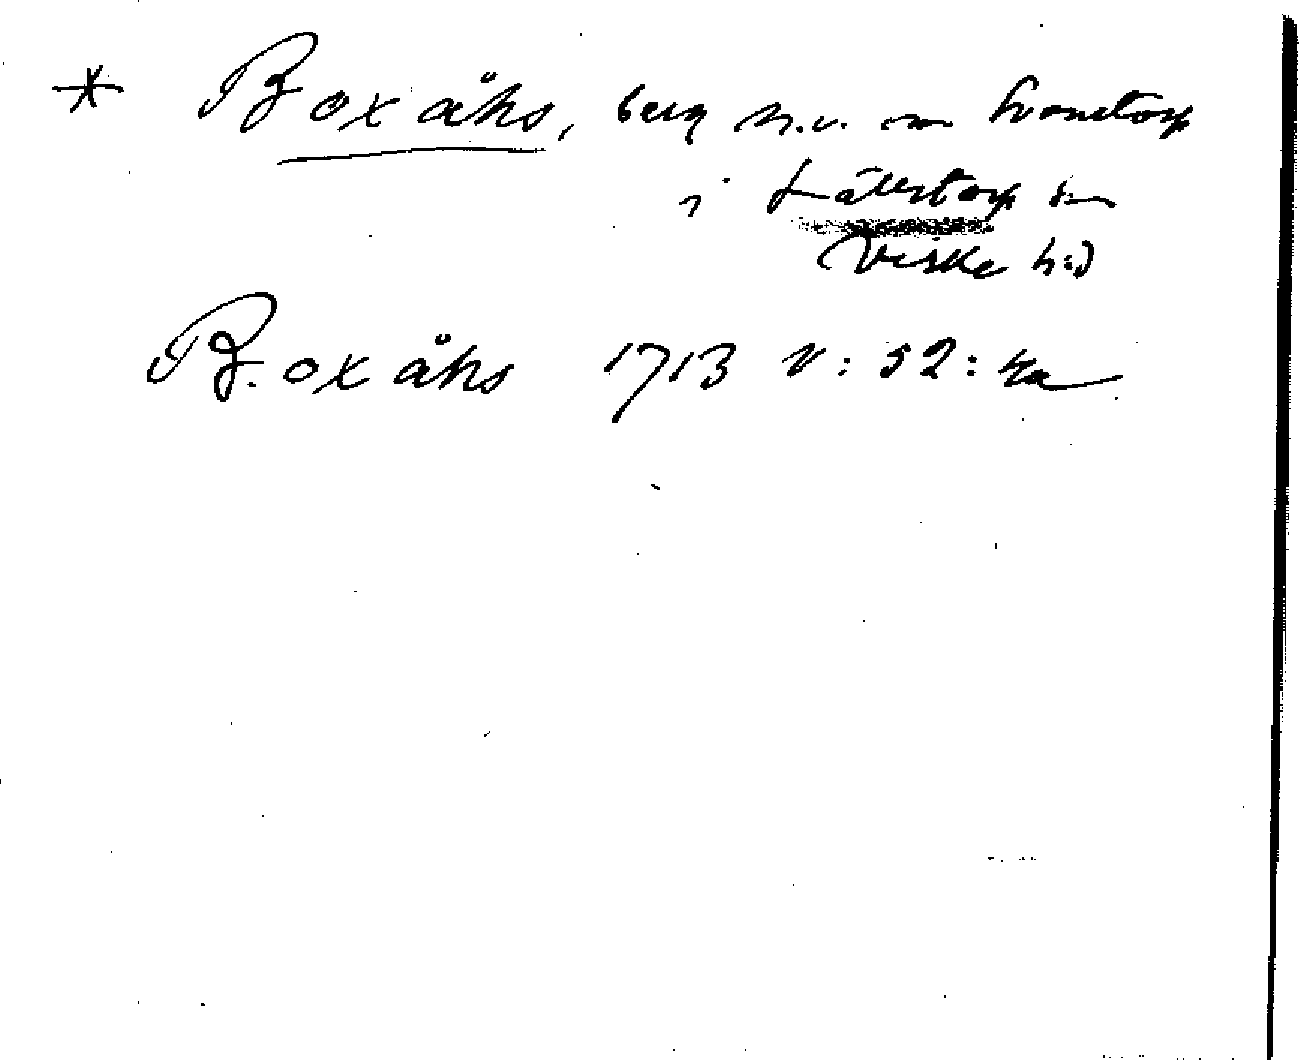 * Boxåhs, berg n.v. om Svanstorp
i Sällstorp sn
Viske hd
Boxåhs 1713 V:52:4a